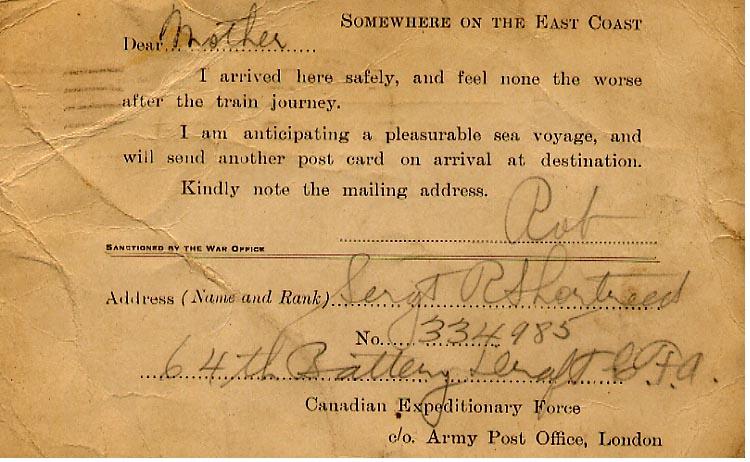 Somewhere on the East Coast
Dear Mother
I arrived here safely, and feel none the worse
after the train journey.
I am anticipating a pleasurable sea voyage, and
will send another post card on arrival at destination.
Kindly note the mailing address.
Rob
Sanctioned by the War Office
Address (Name and Rank) Sergt R Shortreed
No. 334985
64th Battery Draft C.F.A.
Canadian Expeditionary Force
c/o. Army Post Office, London